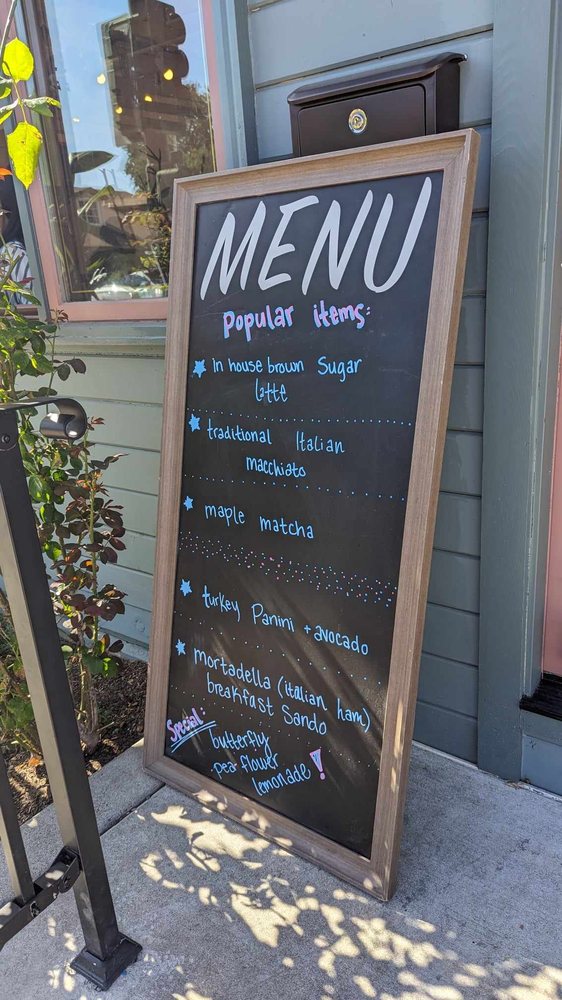 MENU
Popular items:
In house brown Sugar
latte
traditional Italian
macchiato
maple matcha
turkey Panini + avocado
mortadella (italian ham)
breakfast Sando
Special:
butterfly
pea flower
lemonade!